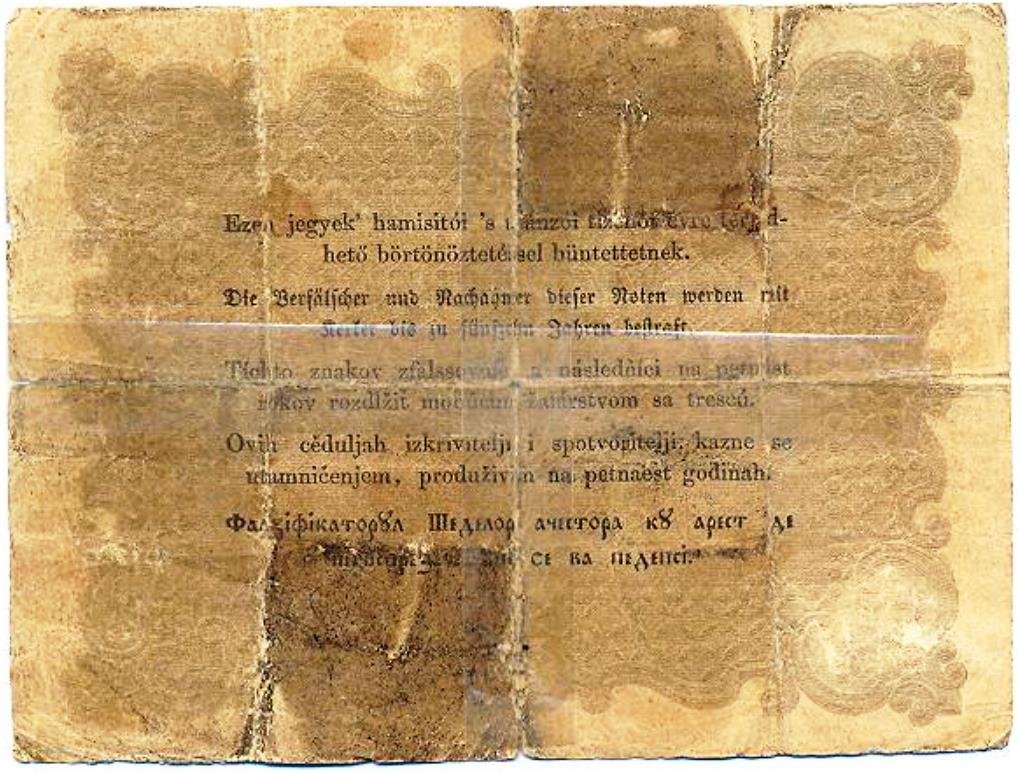 Ezen jegyek' hamisitói 's tizenöt évre
hető börtönöztetéssel büntettetnek.
Die Verfälscher und dieser Noten werden mit
Kerker bis zu fünfzehn Jahren bestraft.
Tíchto znakov a následňíci na
rozdĺžit sa trescú.
Ovih cĕduljah izkrivitelji i spotvoritelji, kazne se
utamničenjem, produživim na petnaest godinah.
Фалзіфікаторꙋл Шеделор ачестора кꙋ арест де
се ва педепсі.